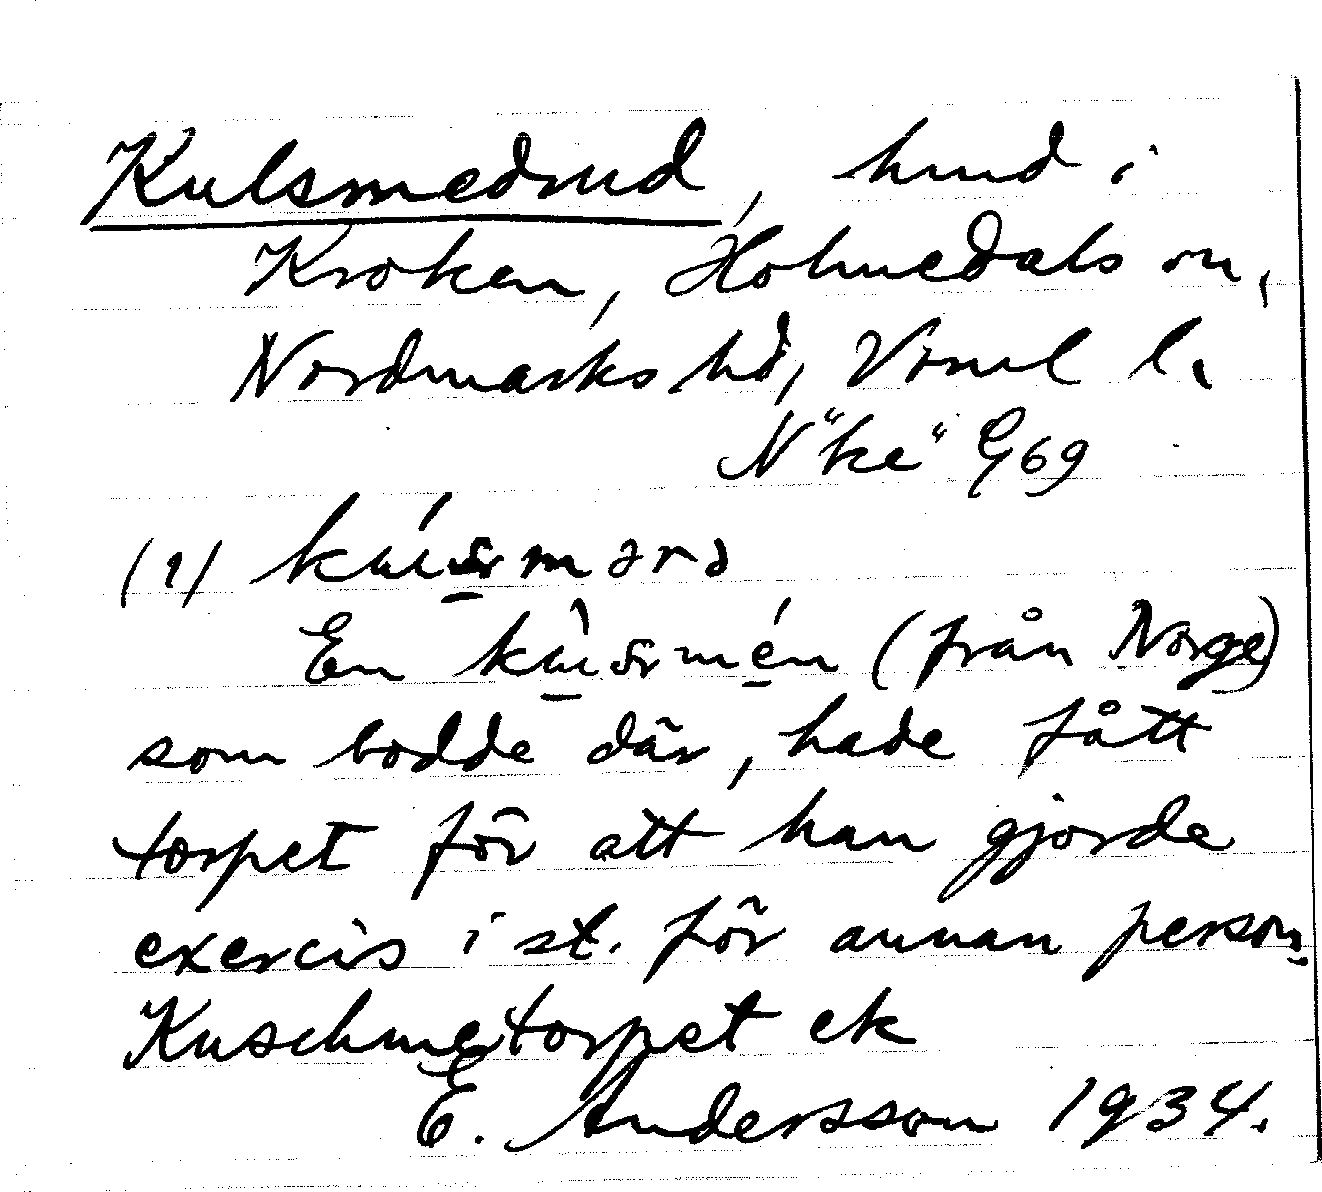 Kulsmedrud, hmd i
Kroken, Holmedals sn,
Nordmarks hd, Vrml l.
N "ke" G69
(1)
En (från Norge)
som bodde där, hade fått
torpet för att han gjorde
exercis i st. för annan person.
Kuschmetorpet ek
E. Andersson 1934.